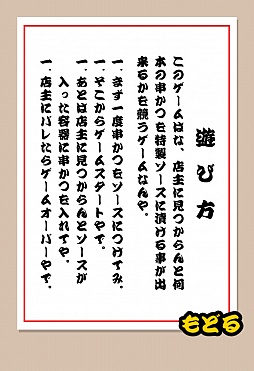 遊び方
このゲームはな、店主に見つからんと何
本の串かつを特製ソースに漬ける事が出
来るかを競うゲームなんや。
一.まず一度串かつをソースにつけてみ.
一.そこからゲームスタートやで。
一.あとは店主に見つからんとソースが
入った容器に串かつを入れてや。
一.店主にバレたらゲームオーバーやで。
もどる